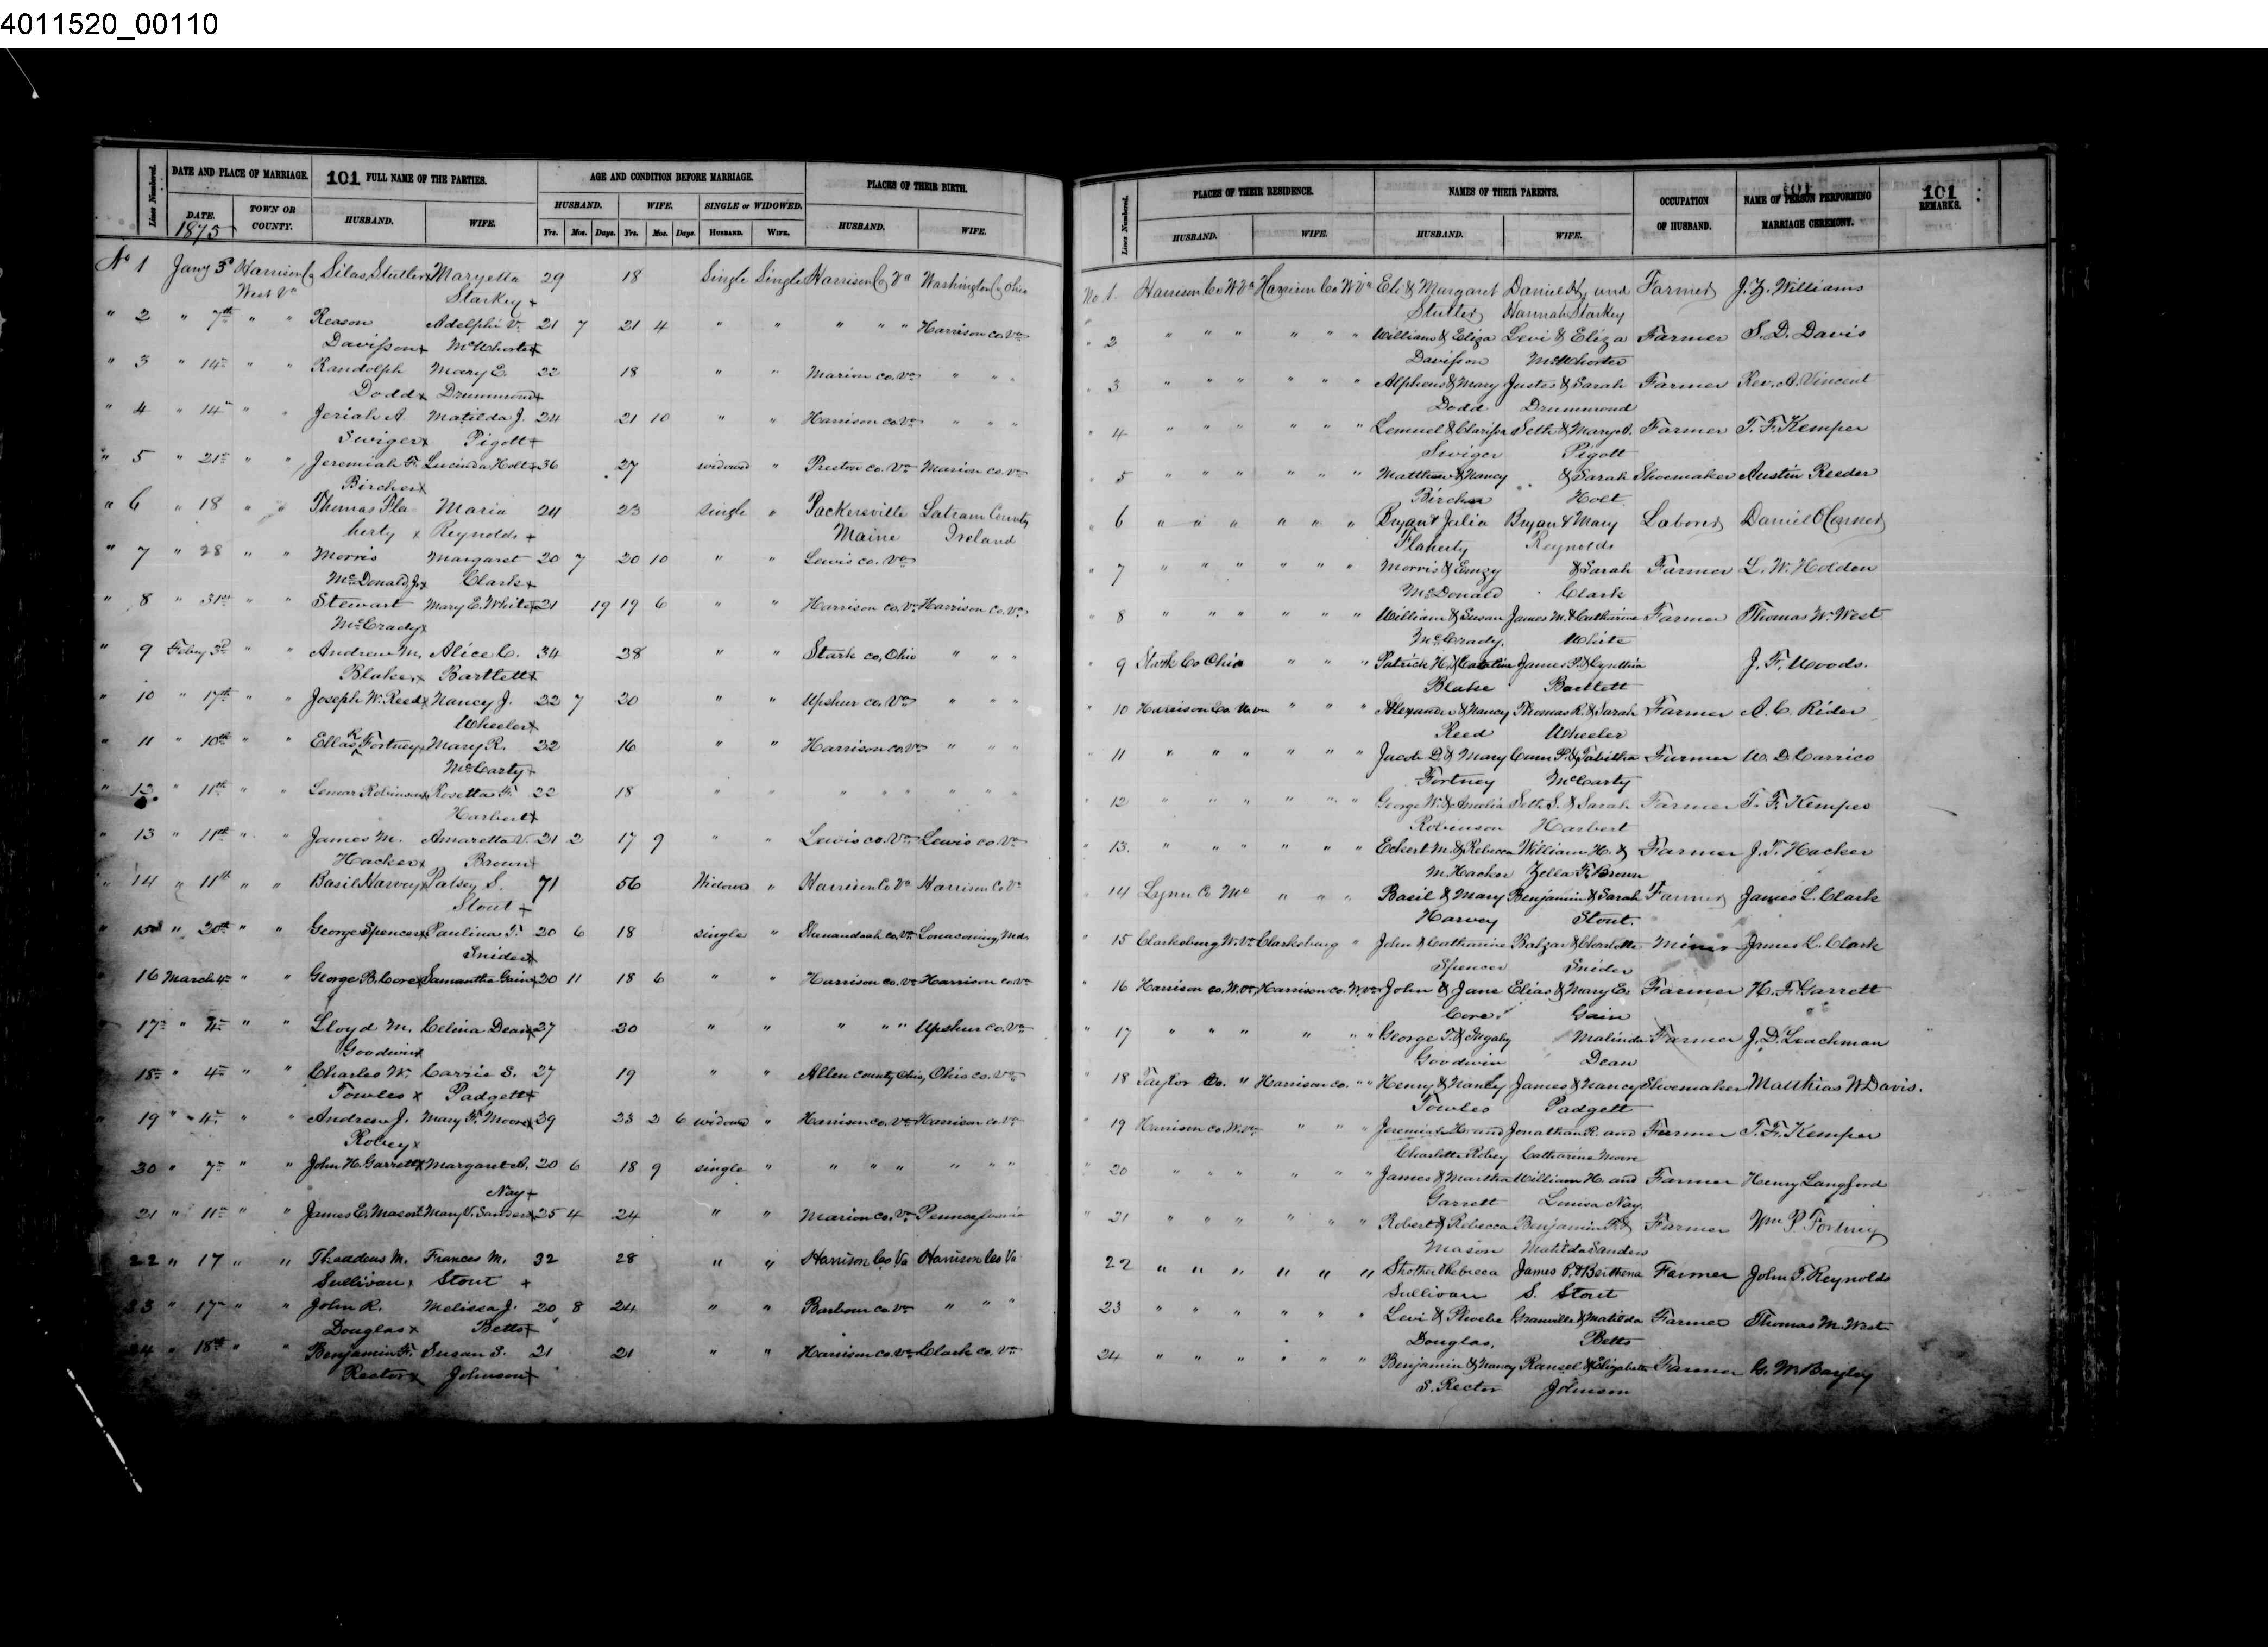 4011520_00110
Lines Numbered. DATE AND PLACE OF MARRIAGE. 101 FULL NAME OF THE PARTIES. AGE AND CONDITION BEFORE MARRIAGE. PLACES OF THEIR BIRTH.
DATE. TOWN OR COUNTY. HUSBAND. WIFE. HUSBAND. WIFE. SINGLE or WIDOWED. HUSBAND. WIFE.
1875 Yrs. Mos. Days. Yrs. Mos. Days. HUSBAND. WIFE.
No 1 Jany 3d Harrison Co Silas Stutler x Maryetta 29 18 Single Single Harrison Co Va Washington Co Ohio
West Va Starkey x
" 2 " 7th " " Reason Adelphi V. 21 7 21 4 " " " " " Harrison co. Va
Davisson x McWhorter x
" 3 " 14th " " Randolph Mary E. 22 18 " " Marion co. Va " " "
Dodd x Drummond x
" 4 " 14" " " Jeriah A Matilda J. 24 21 10 " " Harrison co. Va " " "
Swiger x Pigott x
" 5 " 21st " " Jeremiah F. Lucinda Holt x 36 27 widowed " Preston co. Va Marion co. Va
Bircher x
" 6 " 18 " " Thomas Fla Maria 24 23 single " Packersville Latram County
herty x Reynolds x Maine Ireland
" 7 " 28 " " Morris Margaret 20 7 20 10 " " Lewis co. Va
McDonald, Jr. x Clark x
" 8 " 31st " " Stewart Mary E. White x 21 19 19 6 " " Harrison co. Va Harrison co. Va
McCrady x
" 9 Feby 3d " " Andrew M. Alice C. 34 28 " " Stark co, Ohio " " "
Blake x Bartlett x
" 10 " 17th " " Joseph W. Reed x Nancy J. 22 7 20 " " Upshur co. Va " " "
Wheeler x
" 11 " 10th " " Ellas K Fortney x Mary R. 22 16 " " Harrison co. Va " " "
McCarty x
" 12 " 11th " " Lemar Robinson x Rosetta F. 22 18 " " " " " " " "
Harbert x
" 13 " 11th " " James M. Amaretta V. 21 2 17 9 " " Lewis co. Va Lewis co. Va
Hacker x Brown x
" 14 " 11th " " Basil Harvey x Patsey S. 71 56 Widowed " Harrison Co Va Harrison Co Va
Stout x
" 15 " 20th " " George Spencer x Paulina F. 20 6 18 single " Shenandoah co. Va Lonaconing, Md.
Snider x
" 16 March 4th " " George B. Core x Samantha Gain x 20 11 18 6 " " Harrison co. Va Harrison co. Va
" 17 " 4th " " Lloyd M. Celina Dean x 27 20 " " " " " Upshur co. Va
Goodwin x
18 " 4th " " Charles W. Carrie S. 27 19 " " Allen county Ohio, Ohio co. Va
Towles x Padgett x
" 19 " 4th " " Andrew J. Mary F. Moore x 39 23 2 6 widowed " Harrison co. Va Harrison co. Va
Robey x
20 " 7th " " John H. Garrett x Margaret A. 20 6 18 9 single " " " " " " "
Nay x
21 " 11th " " James E. Mason x Mary V. Sanders x 25 4 24 " " Marion co. Va Pennsylvania
22 " 17 " " Thaddeus M. Frances M. 32 28 " " Harrison Co Va Harrison Co Va
Sullivan x Stout x
23 " 17th " " John R. Melissa J. 20 8 24 " " Barbour co. Va " " "
Douglas x Betts x
24 " 18th " " Benjamin F. Susan S. 21 21 " " Harrison co. Va Clark co. Va
Rector x Johnson x
Lines Numbered. PLACES OF THEIR RESIDENCE. NAMES OF THEIR PARENTS. OCCUPATION OF HUSBAND. NAME OF PERSON PERFORMING MARRIAGE CEREMONY. 101 REMARKS.
HUSBAND. WIFE. HUSBAND. WIFE.
No 1. Harrison Co W Va Harrison Co W Va Eli & Margaret Daniel H, and Farmer J. Z. Williams
Stutler Hannah Starkey
" 2 " " " " " " William & Eliza Levi & Eliza Farmer S. D. Davis
Davisson McWhorter
" 3 " " " " " " Alpheus & Mary Justes & Sarah Farmer Rev. A. Vincent
Dodd Drummond
" 4 " " " " " " Lemuel & Clarissa Seth & Mary A. Farmer T. F. Kemper
Swiger Pigott
" 5 " " " " " " Matthew & Nancy & Sarah Shoemaker Austin Reeder
Bircher Holt
" 6 " " " " " " Bryan & Julia Bryan & Mary Laborer Daniel O'Connor
Flaherty Reynolds
" 7 " " " " " " Morris & Emzy & Sarah Farmer L. W. Holden
McDonald Clark
" 8 " " " " " " William & Susan James M. & Catharine Farmer Thomas W. West
McCrady. White
" 9 Stark Co Ohio " " " Patrick H. & Caroline James P. & Cynthia J. F. Woods.
Blake Bartlett
" 10 Harrison Co. W. Va " " " Alexander & Nancy Thomas R. & Sarah Farmer A. C. Rider
Reed Wheeler
" 11 " " " " " " Jacob D. & Mary Cum P. & Tabitha Farmer W. D. Carrico
Fortney McCarty
" 12 " " " " " " George W. & Amelia Seth S. & Sarah Farmer T. F. Kemper
Robinson Harbert
" 13. " " " " " " Eckert M. & Rebecca William H. & Farmer J. T. Hacker
M. Hacker Zella F. Brown
" 14 Lynn Co Mo " " " Basil & Mary Benjamin & Sarah Farmer James L. Clark
Harvey Stout.
" 15 Clarksburg W. Va Clarksburg " John & Catharine Balzar & Charlotte Miner James L. Clark
Spencer Snider
" 16 Harrison co. W. Va Harrison co. W. Va John & Jane Elias & Mary E. Farmer H. F. Garrett
Core. Gain
" 17 " " " " " " George T. & Ingaby Malinda Farmer J. D. Leachman
Goodwin Dean
" 18 Taylor Co. " Harrison co. " " Henry & Nancy James & Nancy Shoemaker Matthias W Davis.
Towles Padgett
" 19 Harrison co. W. Va " " " Jeremiah H. and Jonathan R. and Farmer T. F. Kemper
Charlotte Robey Catharine Moore
" 20 " " " " " " James & Martha William H. and Farmer Henry Langford
Garrett Louisa Nay.
" 21 " " " " " " Robert & Rebecca Benjamin F. & Farmer Wm P. Fortney
Mason Matilda Sanders
22 " " " " " " Strother & Rebecca James P. & Berthena Farmer John T. Reynolds
Sullivan S. Stout
23 " " " " " " Levi & Phoebe Granville & Matilda Farmer Thomas M. West
Douglas. Betts
24 " " " " " " Benjamin & Nancy Ransel & Elizabeth Farmer G. M. Bayley
S. Rector Johnson